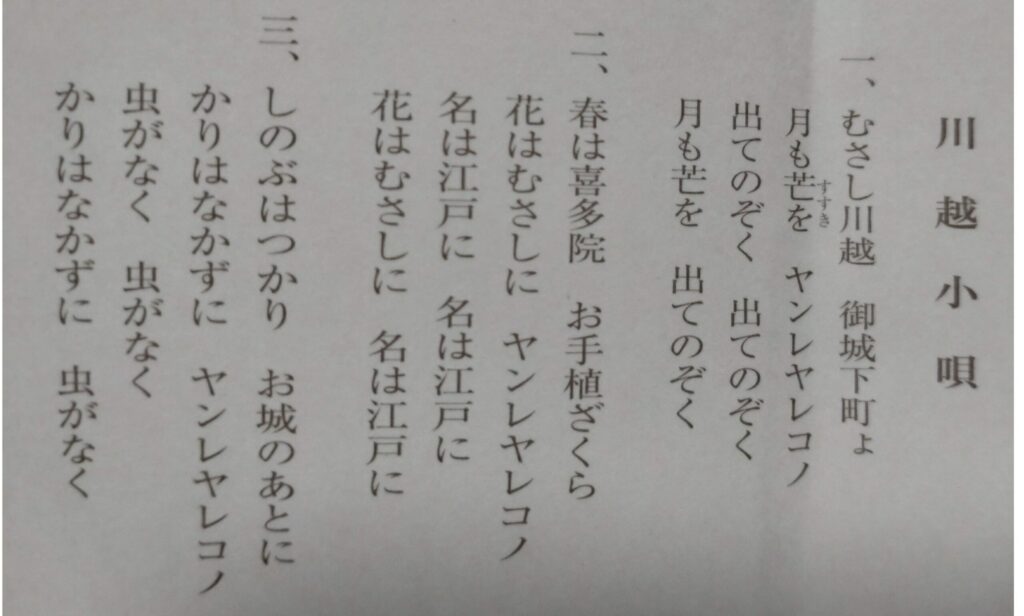 川越小唄
一、むさし川越　御城下町ょ
月も芒を　ヤンレヤレコノ
すすき
出てのぞく　出てのぞく
月も芒を　出てのぞく
二、春は喜多院　お手植ざくら
花はむさしに　ヤンレヤレコノ
名は江戸に　名は江戸に
花はむさしに　名は江戸に
三、しのぶはつかり　お城のあとに
かりはなかずに　ヤンレヤレコノ
虫がなく　虫がなく
かりはなかずに　虫がなく